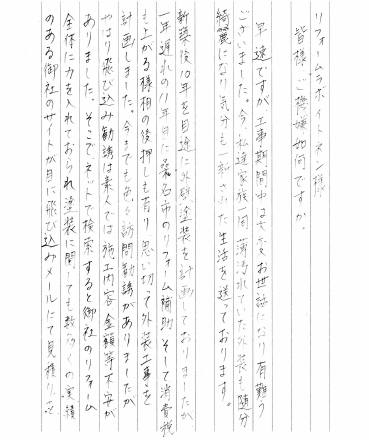 リフォームラボイトスン様
皆様、ご機嫌如何ですか。
早速ですが工事期間中は大変お世話になり有難う
ございました。今、私達家族一同薄汚れていた外装も随分
綺麗になり気分も一新された生活を送っております。
新築後10年を目途に外壁塗装を計画しておりましたが
一年遅れの11年目に桑名市のリフォーム補助、そして消費税
も上がる様相の後押しも有り思い切って外装工事を
計画しました。今までも色々訪問勧誘がありましたが
やはり飛び込み勧誘は素人では施工内容金額等不安が
ありました。そこでネットで検索すると御社のリフォーム
全体に力を入れておられ塗装に関しても数多くの実績
のある御社のサイトが目に飛び込みメールにて見積りを